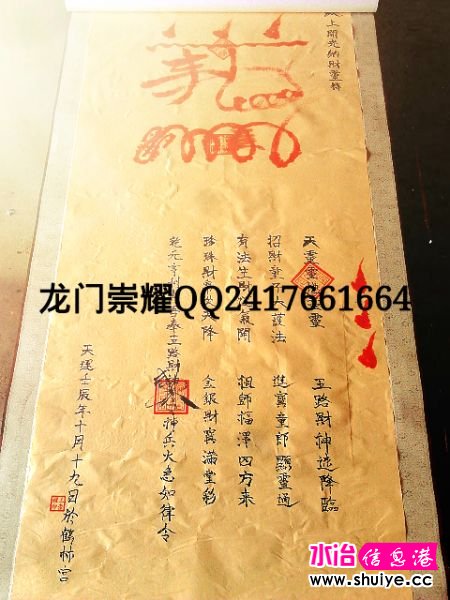 上開光納財靈符
天靈靈地靈 五路財神速降臨
招財童子大護法 進寶童郎顯靈通
有法生財氣開 祖師福澤四方來
珍珠財天降 金銀財寶滿堂移
乾元亨利奉五路財神兵火急如律令
天運壬辰年十月十九日於鶴林宮
龙门崇耀QQ2417661664
水冶信息港
www.shuiye.cc